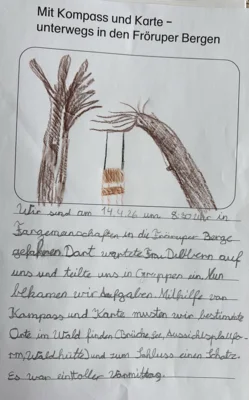 Mit Kompass und Karte –
unterwegs in den Fröruper Bergen
Wir sind am 14.4.26 um 8:30 Uhr in
Fargemanschaften in die Fröruper Berge
gefahren. Dort wartete Frau Dubbern auf
uns und teilte uns in Grappen ein. Nun
bekamen wir Aufgaben. Mithilfe von
Kompass und Karte musten wir bestimmte
Orte im Wald finden (Brücke, See, Aussichtsplattfo-
rm, Waldhütte) und zum Schluss einen Schatz.
Es war ein toller Vormittag.